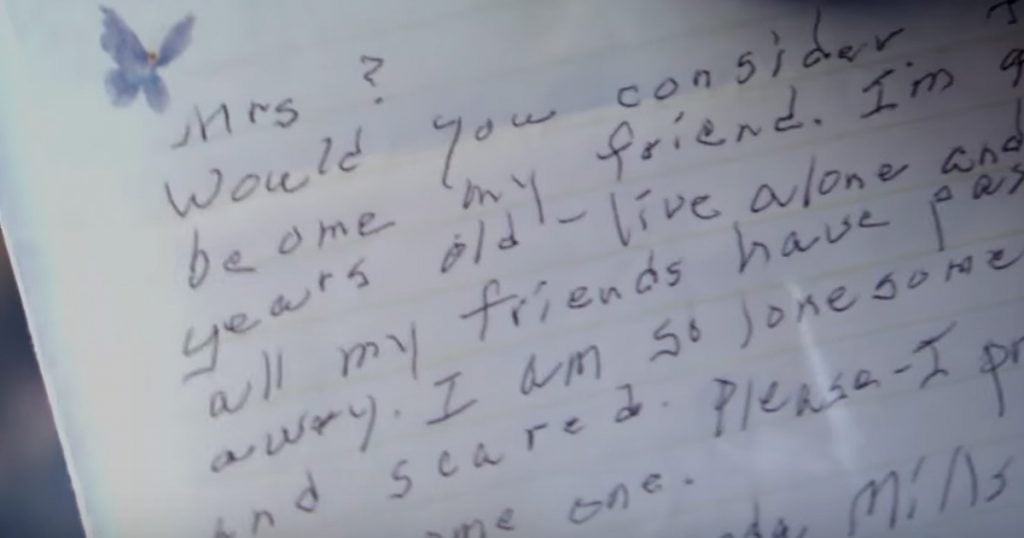 Mrs ?
Would you consider
become my friend. I'm
years old - live alone and
all my friends have
away. I am so lonesome
and scared. Please - I
one.
Mills